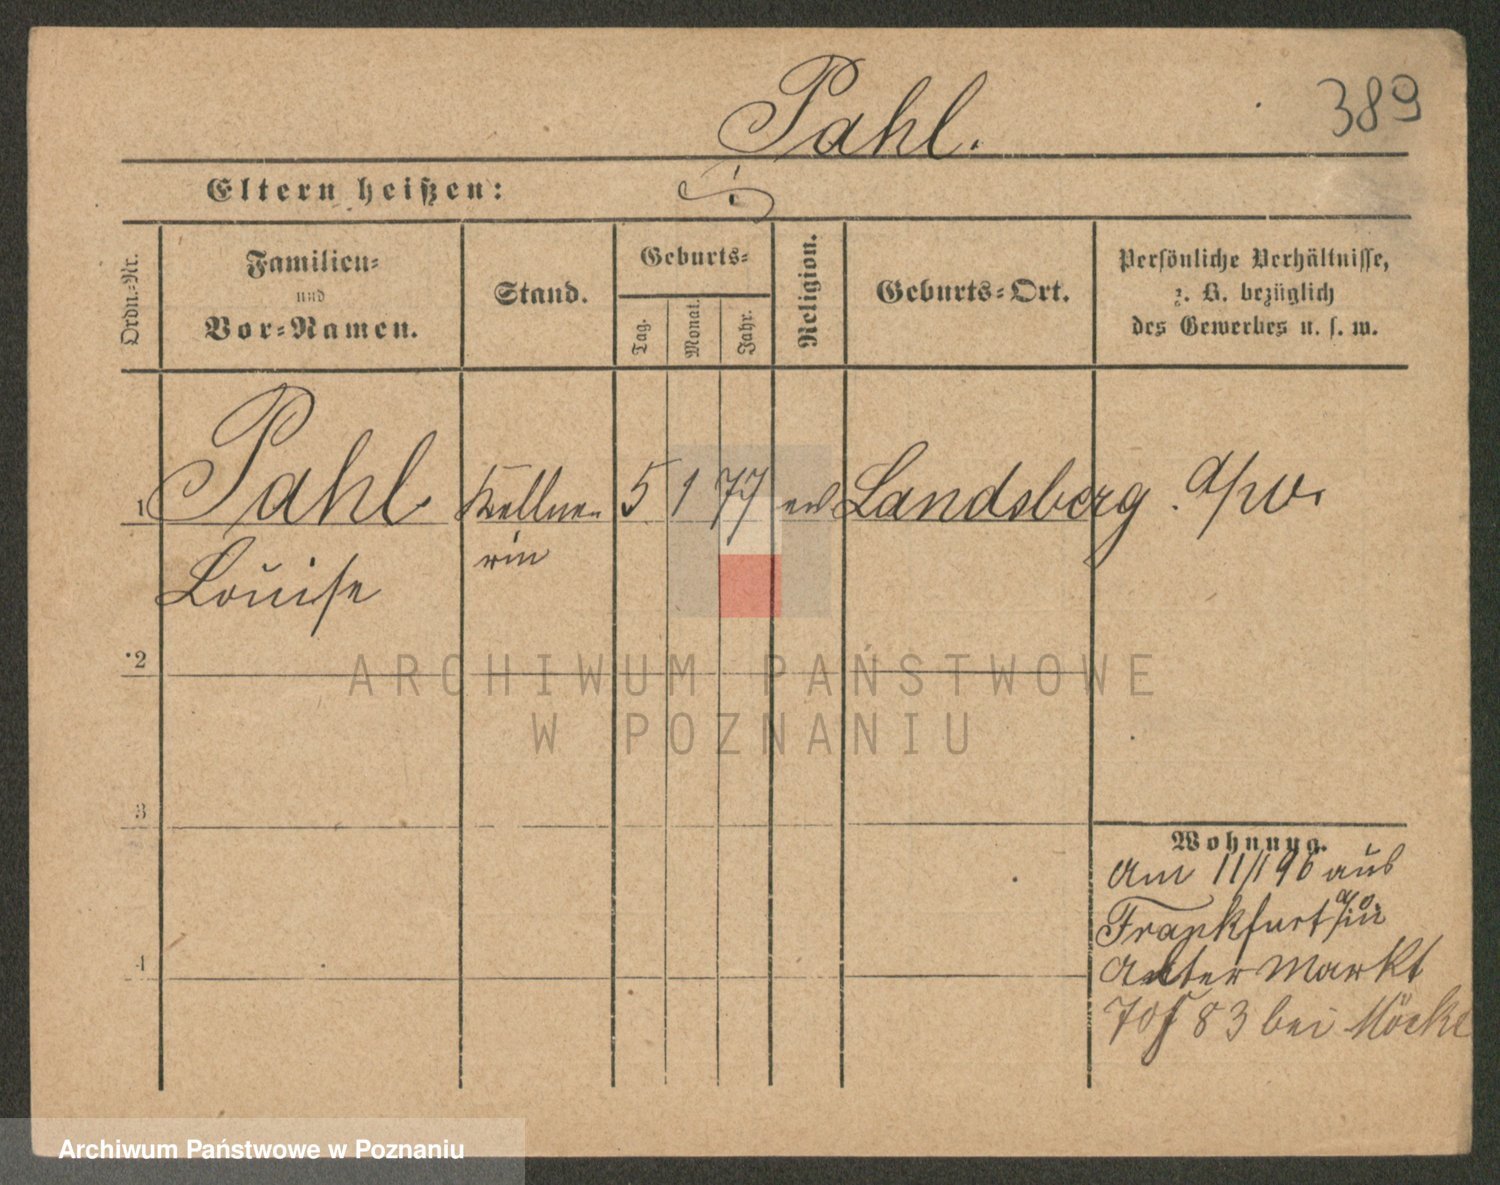 Pahl.
389
Eltern heißen:
Ordn.-Nr.
Familien-
und
Vor-Namen.
Stand.
Geburts-
Tag.
Monat.
Jahr.
Religion.
Geburts-Ort.
Persönliche Verhältnisse,
z. B. bezüglich
des Gewerbes u. s. w.
1 Pahl Kellne- 5 1 77 ev Landsberg a/w.
Louise rin
2
ARCHIWUM PAŃSTWOWE
W POZNANIU
3
Wohnung.
Am 11/1 96 aus
Frankfurt a/o in
4
Alter Markt
83 bei
Archiwum Państwowe w Poznaniu